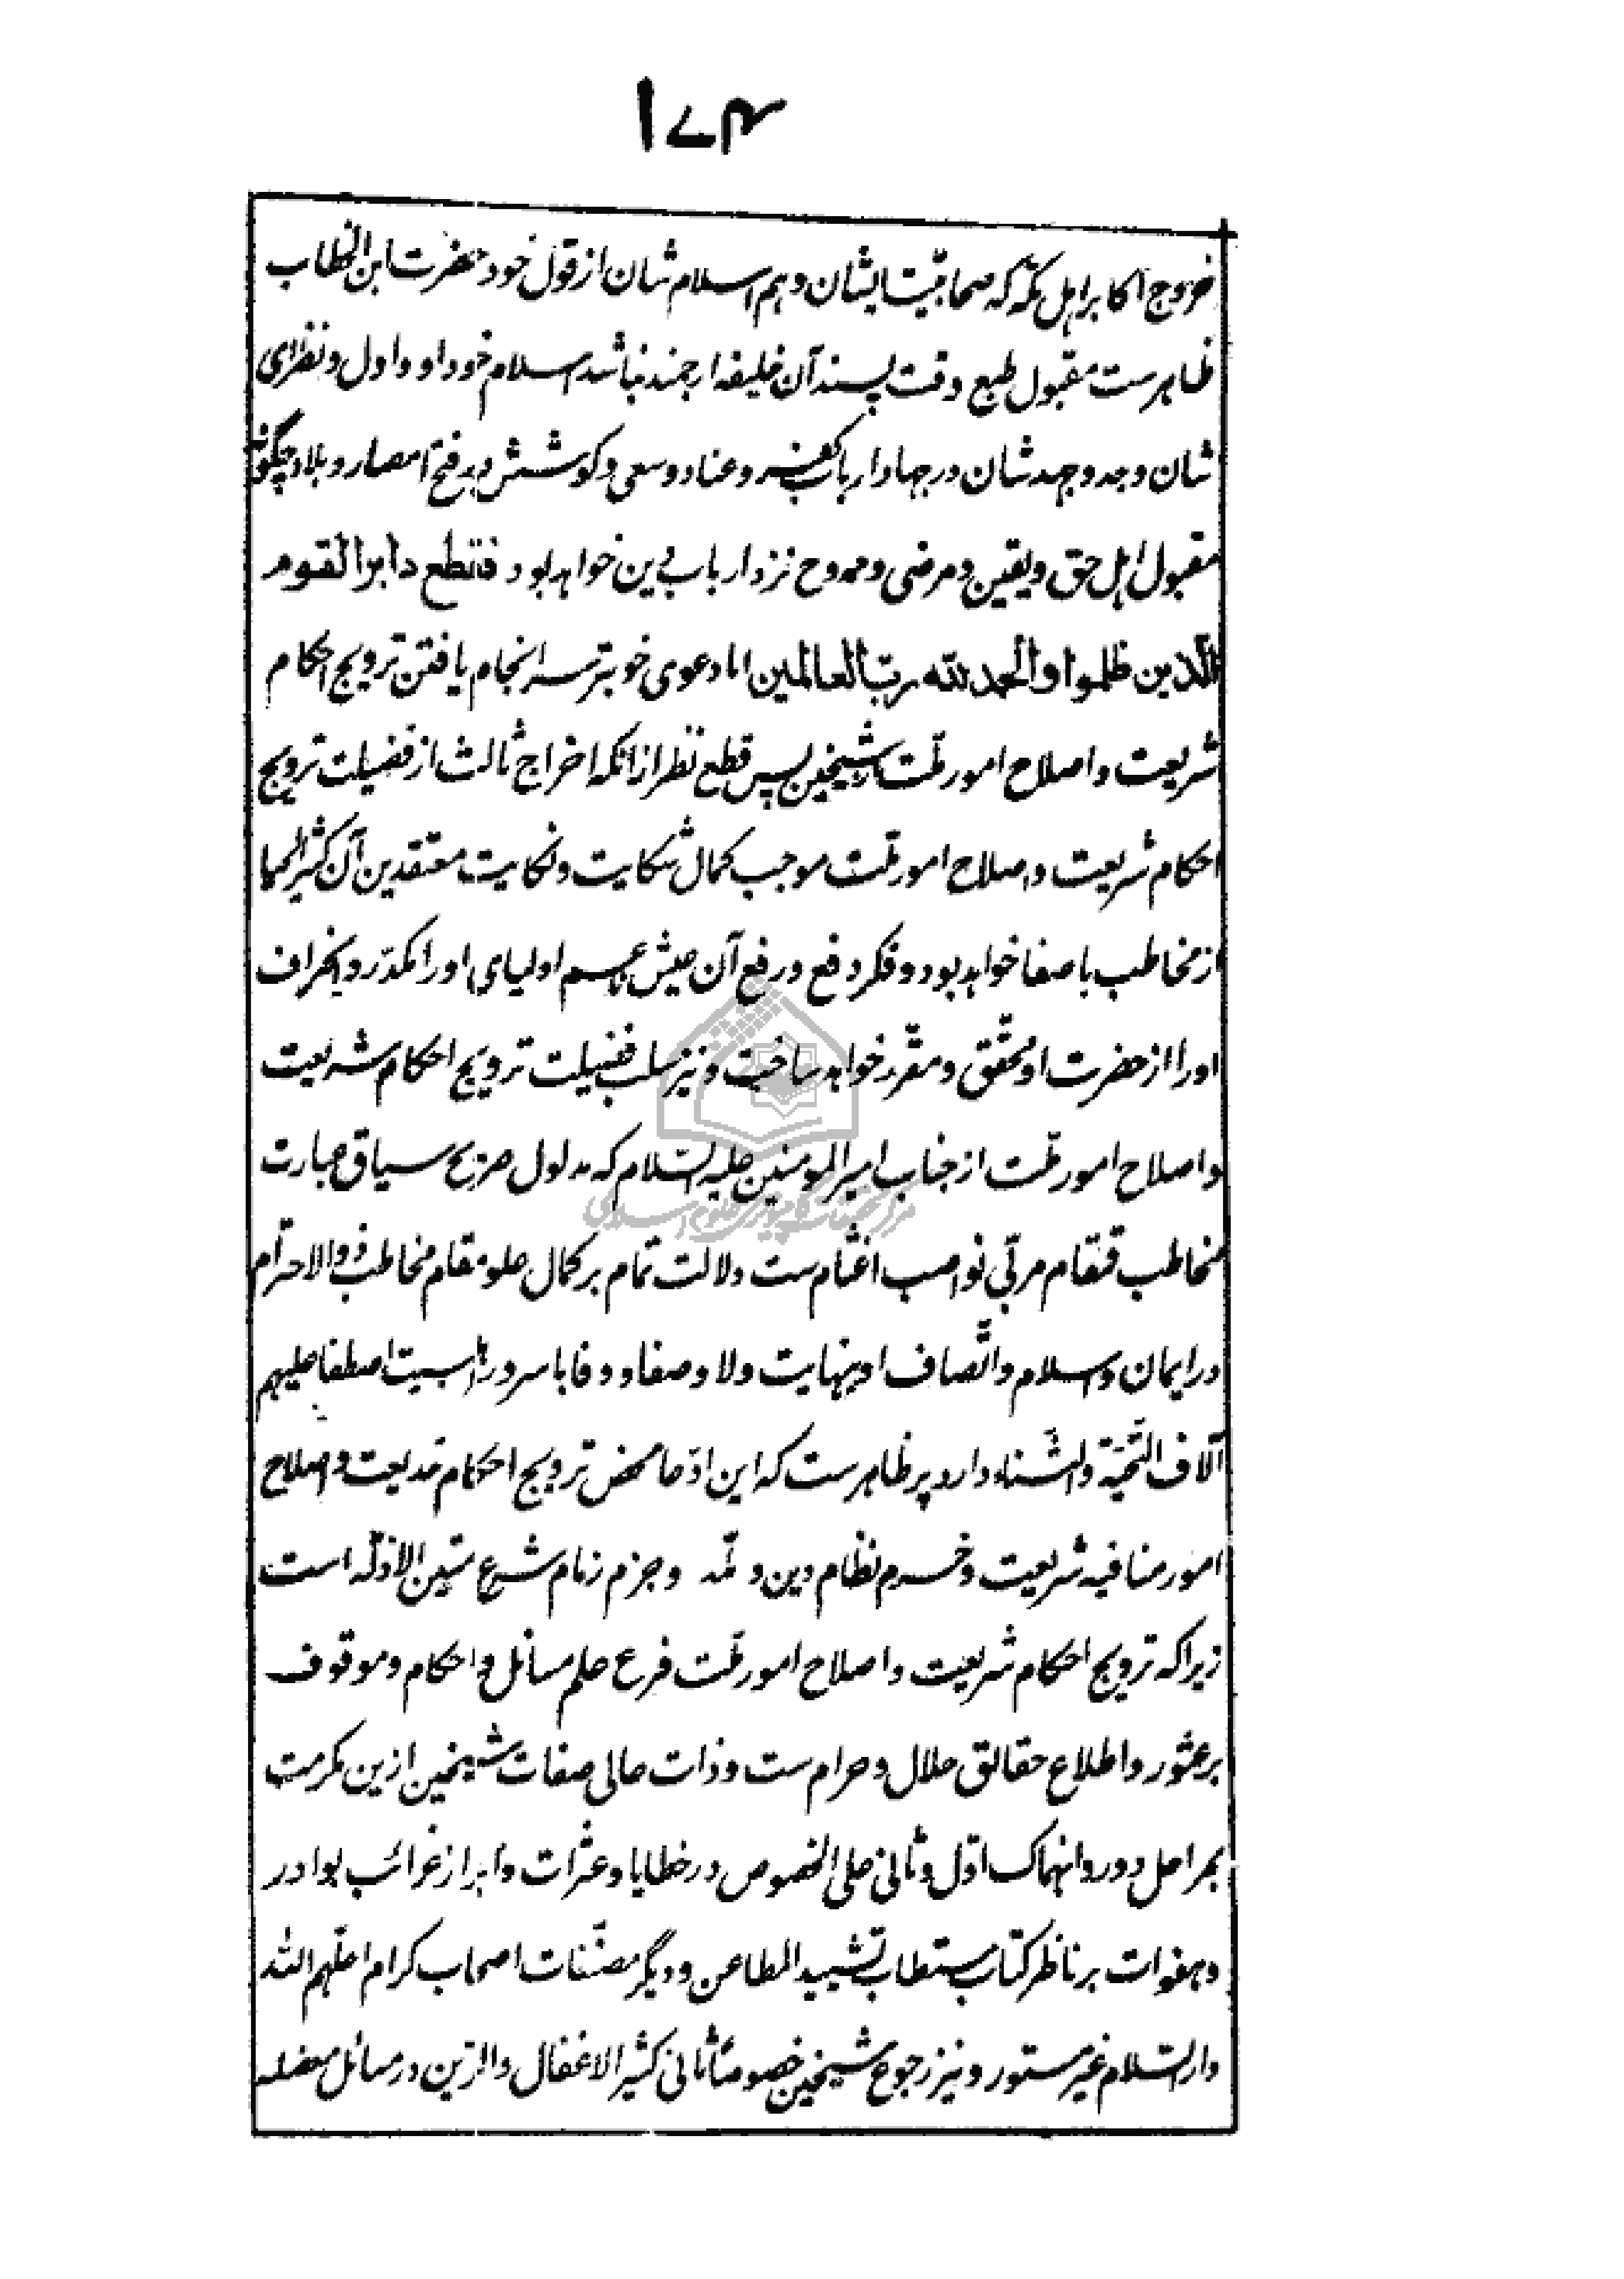 ۱۷۴
خروج اکابر اهل مکه که صحابیت ایشان و هم اسلام شان از قول خود حضرت ابن الخطاب
ظاهرست مقبول طبع دقت پسند آن خلیفه ارجمند نباشد اسلام خود او و اول و نظرای
شان و جد و جهد شان در جهاد ارباب کفر و عناد و سعی و کوشش در فتح امصار و بلاد چگونه
مقبول اهل حق و یقین و مرضی و ممدوح نزد ارباب دین خواهد بود فقطع دابر القوم
الذین ظلموا والحمد لله رب العالمین اما دعوی خوبتر سرانجام یافتن ترویج احکام
شریعت و اصلاح امور ملت بشیخین پس قطع نظر از آنکه اخراج ثالث از فضیلت ترویج
احکام شریعت و اصلاح امور ملت موجب کمال شکایت و نکایت معتقدین آن کثیر الحیا
از مخاطب باصفا خواهد بود و فکر دفع و رفع آن عیش اولیای او را مکدر و انحراف
او را از حضرت او محقق و مقرر خواهد ساخت و نیز سلب فضیلت ترویج احکام شریعت
و اصلاح امور ملت از جناب امیر المومنین علیه السلام که مدلول صریح سیاق عبارت
مخاطب قمقام مربی نواصب اغثام ست دلالت تمام بر کمال علو مقام مخاطب ذو الاحترام
در ایمان و اسلام و اتصاف او بنهایت ولا و صفا و وفا با سرور اهلبیت اصطفا علیهم
آلاف التحیة والثناء دارد پر ظاهرست که این ادعا محض ترویج احکام خدیعت و اصلاح
امور منافیه شریعت و خرم نظام دین و ملت و جزم زمام شرع متین الادله است
زیرا که ترویج احکام شریعت و اصلاح امور ملت فرع علم مسائل و احکام و موقوف
بر عثور و اطلاع حقائق حلال و حرام ست و ذات عالی صفات شیخین ازین مکرمت
بمراحل دور و انهماک اول و ثانی علی الخصوص در خطایا و عثرات و ابراز غرائب بوادر
و هفوات بر ناظر کتاب مستطاب تشیید المطاعن و دیگر مصنفات اصحاب کرام احلهم الله
دار السلام غیر مستور و نیز رجوع شیخین خصوصا ثانی کثیر الاغفال والرین در مسائل معضله
مرکز تحقیقات کامپیوتری علوم اسلامی